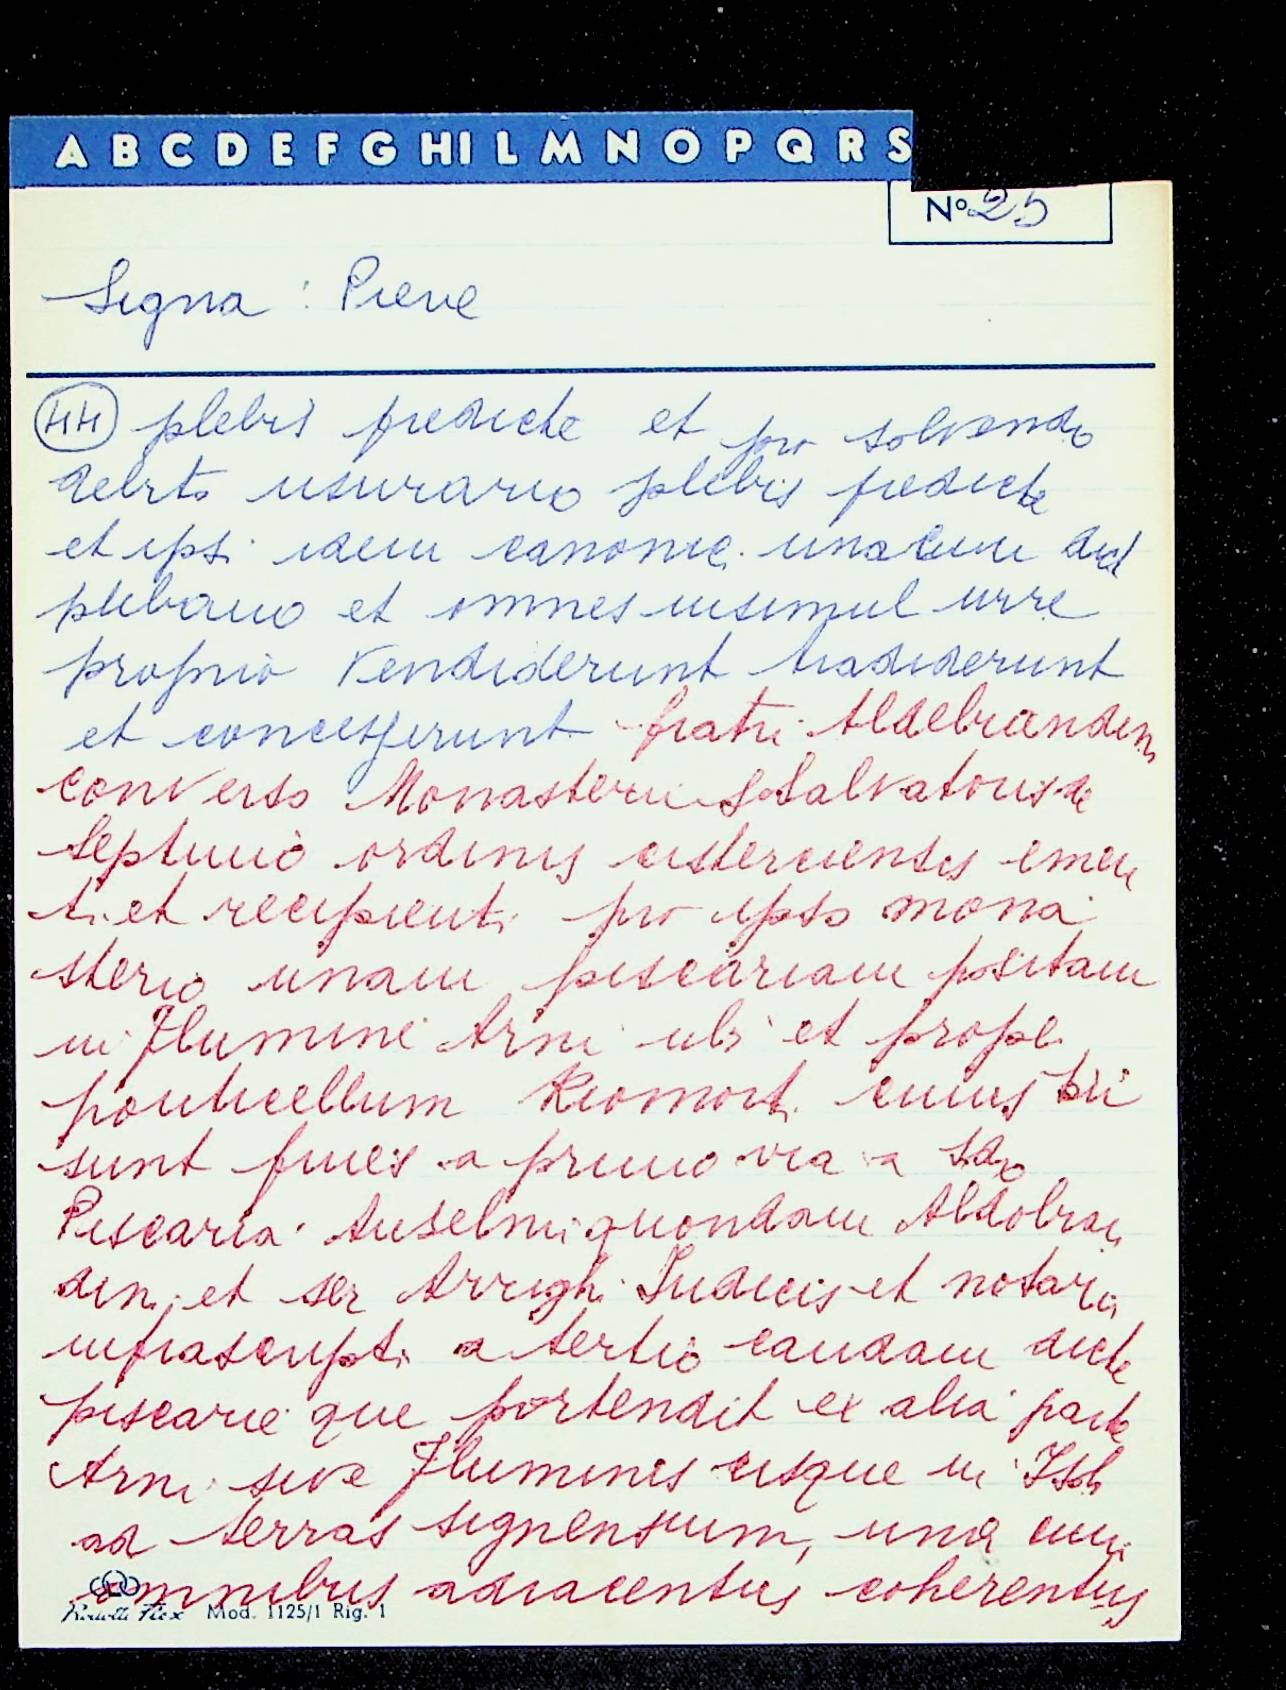 A B C D E F G HI L M N O P Q R S
N° 25
Segna : Pieve
44 plebis predicte et pro solvendo
debito usurario plebis predicte
et ipsi idem canonici una cum dict
plebano et omnes insimul iure
proprio vendiderunt tradiderunt
et concesserunt fratri Aldebrandin
converso Monasterii S. Salvatoris de
Septimo ordinis cisterciensis emen
ti et recipienti pro ipso mona
sterio unam piscariam positam
in flumine Arni ubi et prope
ponticellum Riomorti cuius
sunt fines a primo via a sdo
Piscaria Anselmi quondam Aldobran
dini et ser Arrighi Iudicis et notarii
infrascripti a tertio caudam dicte
piscarie que portendit ex alia parte
Arni sive fluminis usque in
ad terras signensium, una cum
omnibus adiacentiis coherentiis
Mod. 1125/1 Rig. 1